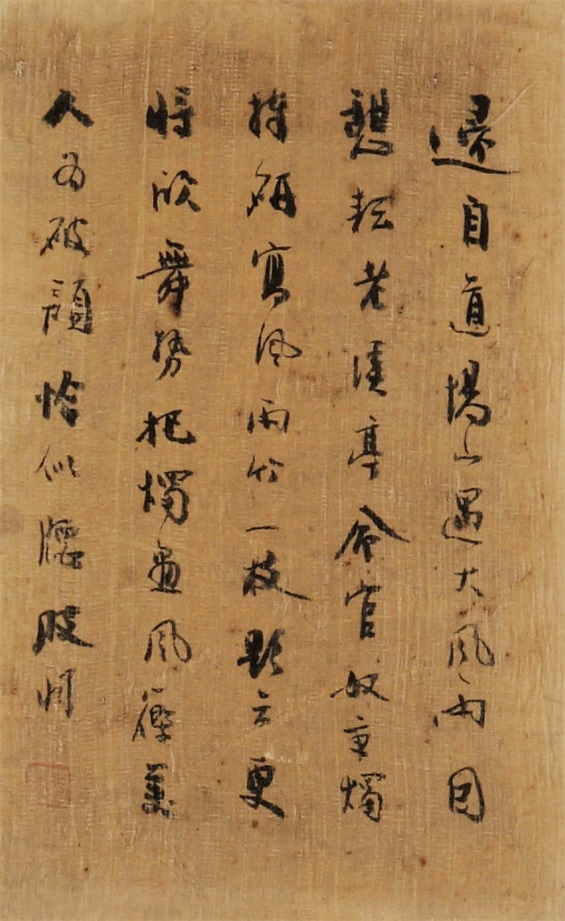 還自道場山遇大風雨因
憩耘老溪亭命官奴秉燭
捧研寫風雨竹一枝題云更
將欹舞勢把燭畫風篠美
人為破顔恰似腰肢嫋